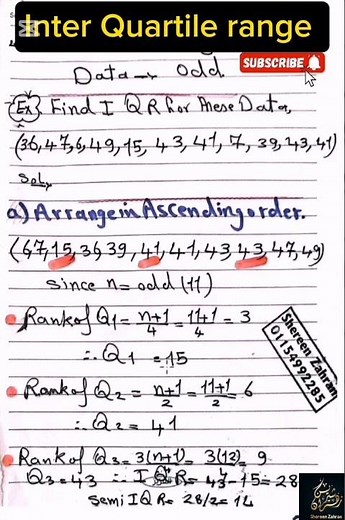 Inter Quartile range
SUBSCRIBE
Data → odd.
Ex Find I Q R for these Data,
(36,47,6,49,15, 43,41, 7, 39,43,41)
Sol,
a) Arrange in Ascending order.
(6,7,15,36,39,41,41,43,43,47,49)
since n= odd (11)
Rank of Q1 = n+1/4 = 11+1/4 = 3
∴ Q1 = 15
Rank of Q2 = n+1/2 = 11+1/2 = 6
∴ Q2 = 41
Rank of Q3 = 3(n+1)/4 = 3(12)/4 = 9
Q3 = 43 ∴ I Q R = 43-15 = 28
Semi I Q R = 28/2 = 14
Shereen Zahran
01154992285
Shereen Zahran